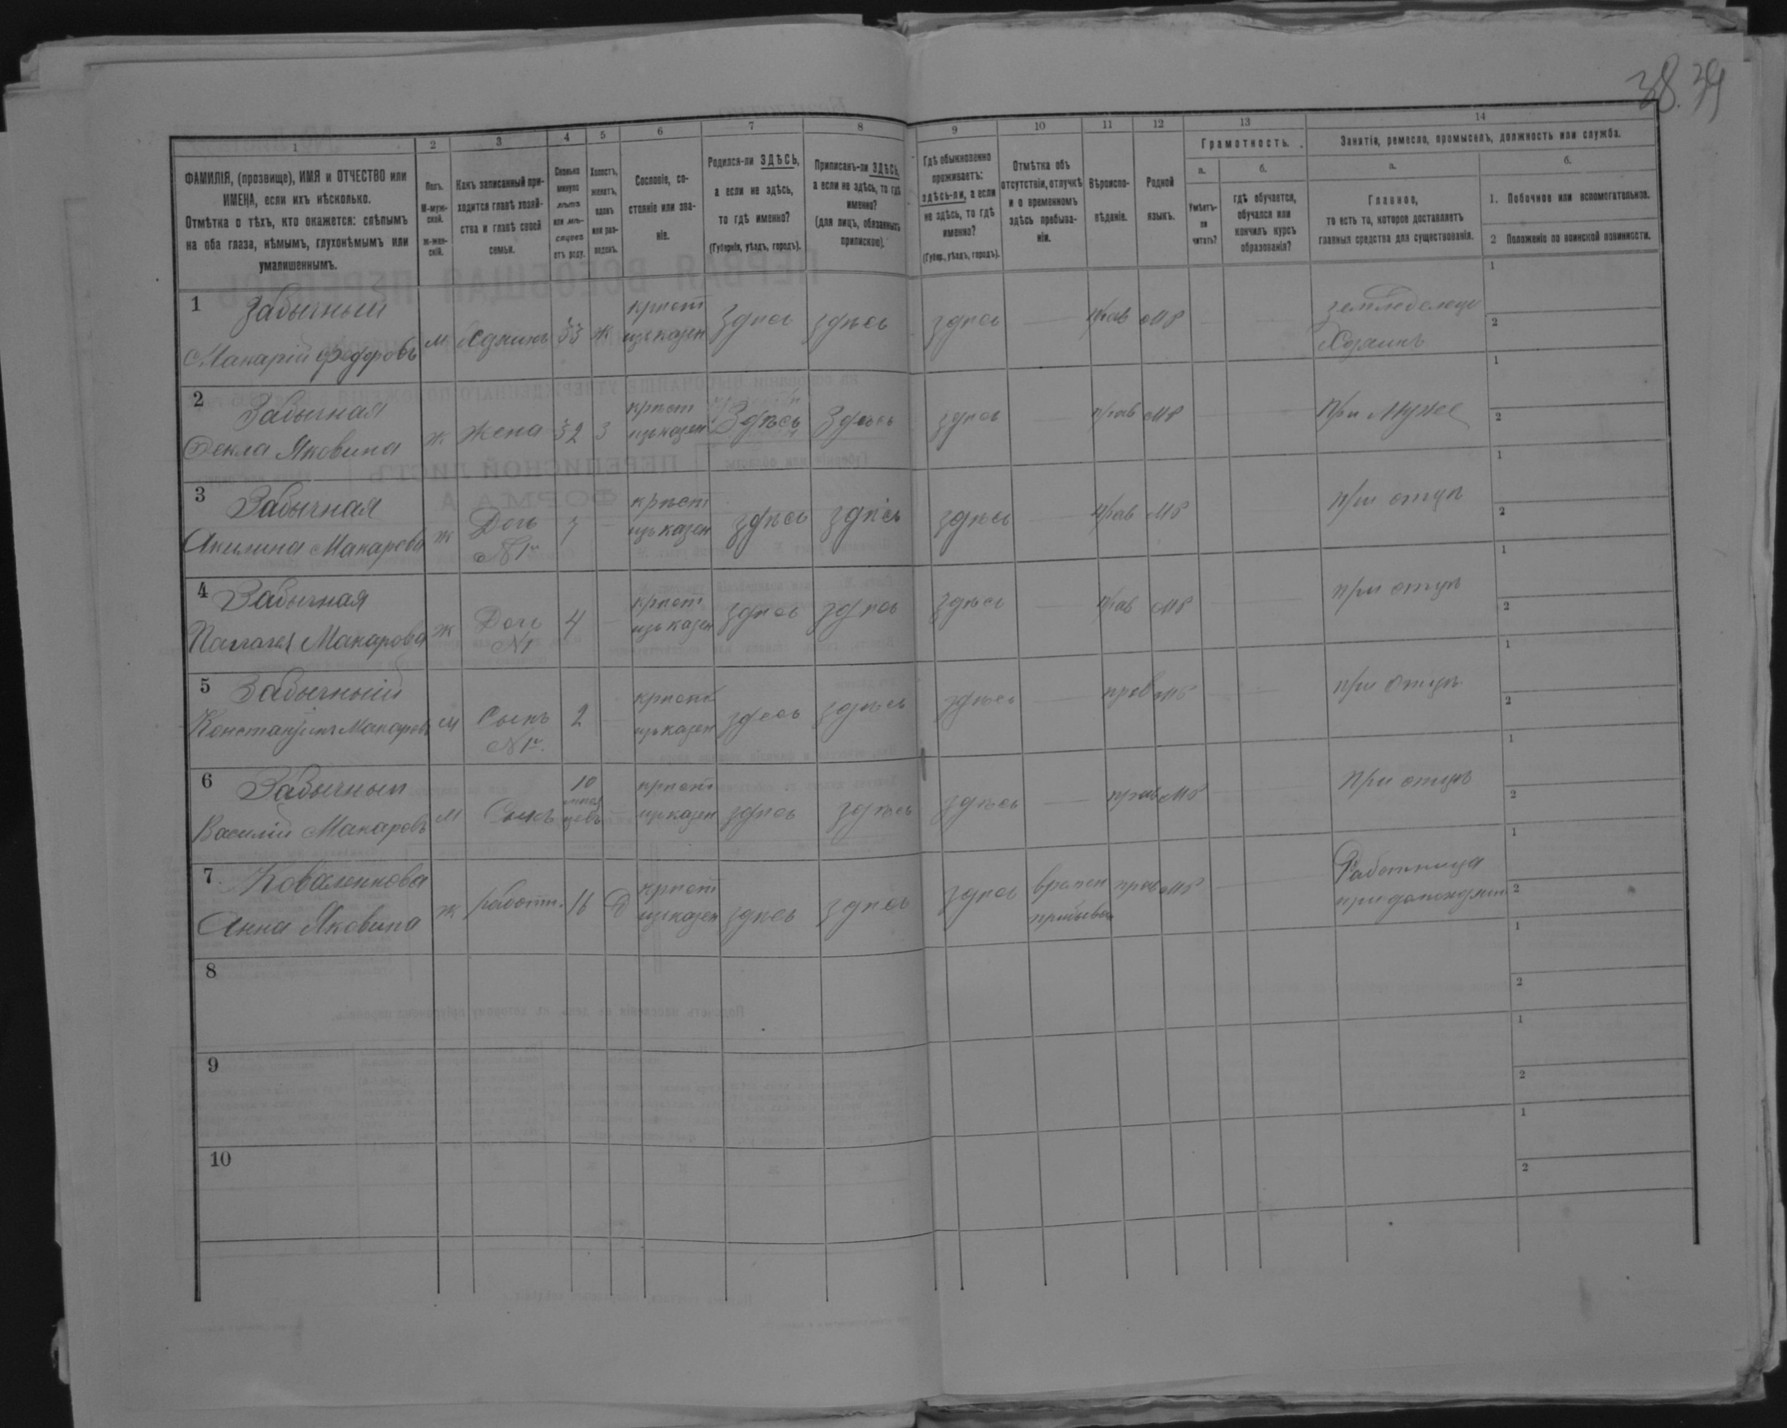 38. 39
1 2 3 4 5 6 7 8 9 10 11 12 13 14
ФАМИЛІЯ, (прозвище), ИМЯ и ОТЧЕСТВО или
ИМЕНА, если ихъ нѣсколько.
Отмѣтка о тѣхъ, кто окажется: слѣпымъ
на оба глаза, нѣмымъ, глухонѣмымъ или
умалишеннымъ.
Полъ.
М-муж-
ской.
ж-жен-
скій.
Какъ записанный при-
ходится главѣ хозяй-
ства и главѣ своей
семьи.
Сколько
минуло
лѣтъ
или мѣ-
сяцевъ
отъ роду.
Холостъ,
женатъ,
вдовъ
или раз-
веденъ.
Сословіе, со-
стояніе или зва-
ніе.
Родился-ли ЗДѢСЬ,
а если не здѣсь,
то гдѣ именно?
(Губернія, уѣздъ, городъ).
Приписанъ-ли ЗДѢСЬ,
а если не здѣсь, то гдѣ
именно?
(для лицъ, обязанныхъ
припискою).
Гдѣ обыкновенно
проживаетъ:
здѣсь-ли, а если
не здѣсь, то гдѣ
именно?
(Губер., уѣздъ, городъ).
Отмѣтка объ
отсутствіи, отлучкѣ
и о временномъ
здѣсь пребыва-
ніи.
Вѣроиспо-
вѣданіе.
Родной
языкъ.
Грамотность.
а.
Умѣетъ-
ли
читать?
б.
гдѣ обучается,
обучался или
кончилъ курсъ
образованія?
Занятія, ремесло, промыселъ, должность или служба.
а.
Главное,
то есть то, которое доставляетъ
главныя средства для существованія.
б.
1. Побочное или вспомогательное.
2 Положеніе по воинской повинности.
1 Забычный
Макарій Федоровъ м Хозяинъ 33 ж крѣст изъ казен здѣсь здѣсь здѣсь — прав мр земледелецъ Хозяинъ 1 2
2 Забычная
Фекла Яковина ж Жена 32 з крѣст изъ казен Здѣсь Здѣсь здѣсь — прав мр при мужѣ 1 2
3 Забычная
Акилина Макарова ж Дочь №1й 7 — крѣст изъ казен здѣсь здѣсь здѣсь — прав мр при отцѣ 1 2
4 Забычная
Палагея Макарова ж Дочь №1 4 — крѣст изъ казен здѣсь здѣсь здѣсь — прав мр при отцѣ 1 2
5 Забычный
Константинъ Макаровъ м Сынъ №1й 2 — крѣст изъ казен здѣсь здѣсь здѣсь — прав мр при отцѣ 1 2
6 Забычный
Василій Макаровъ м Сынъ 10 — крѣст изъ казен здѣсь здѣсь здѣсь — прав мр при отцѣ 1 2
7. Коваленкова
Анна Яковина ж работн. 16 д крѣст изъ казен здѣсь здѣсь здѣсь времен прав мр Работница 1 2
8 1 2
9 1 2
10 1 2